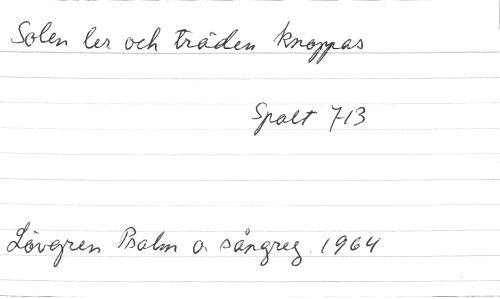 Solen ler och träden knoppas
Spalt 713
Lövgren Psalm o. sångreg. 1964